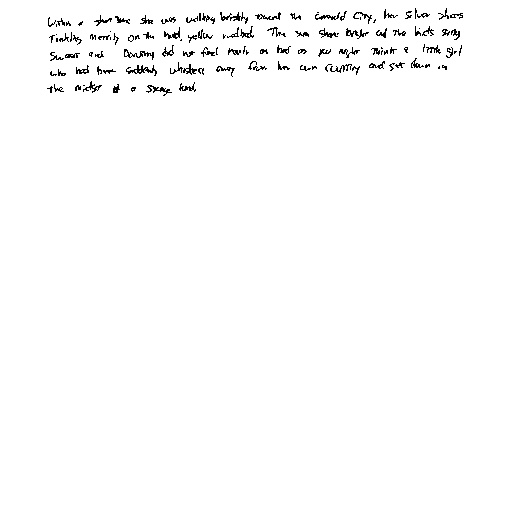 Within a short time she was walking briskly toward the Emerald City, her Silver Shoes
Tinkling merrily on the hard, yellow roadbed. The sun shone bright and the birds sang
Sweet and Dorothy did not feel nearly as bad as you might think a little girl
who had been suddenly whisked away from her own country and set down in
the midst of a strange land.